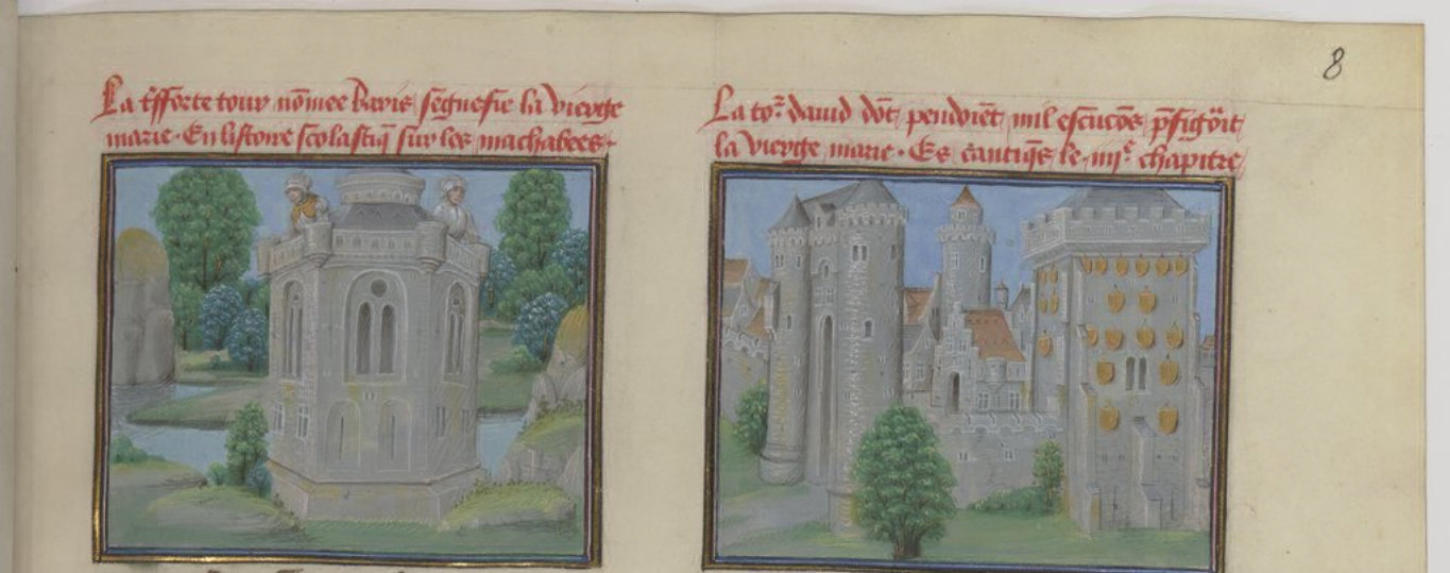 8
La tͬsforte tour nōmee baris segnefie la vierge
marie · En listoire scolastiq̄ sur les machabees ·
La toͬ dauid dōt pendoiēt mil escucōs p̄figōit
la vierge marie · Es cantiq̄s le iiijͤ chapitre